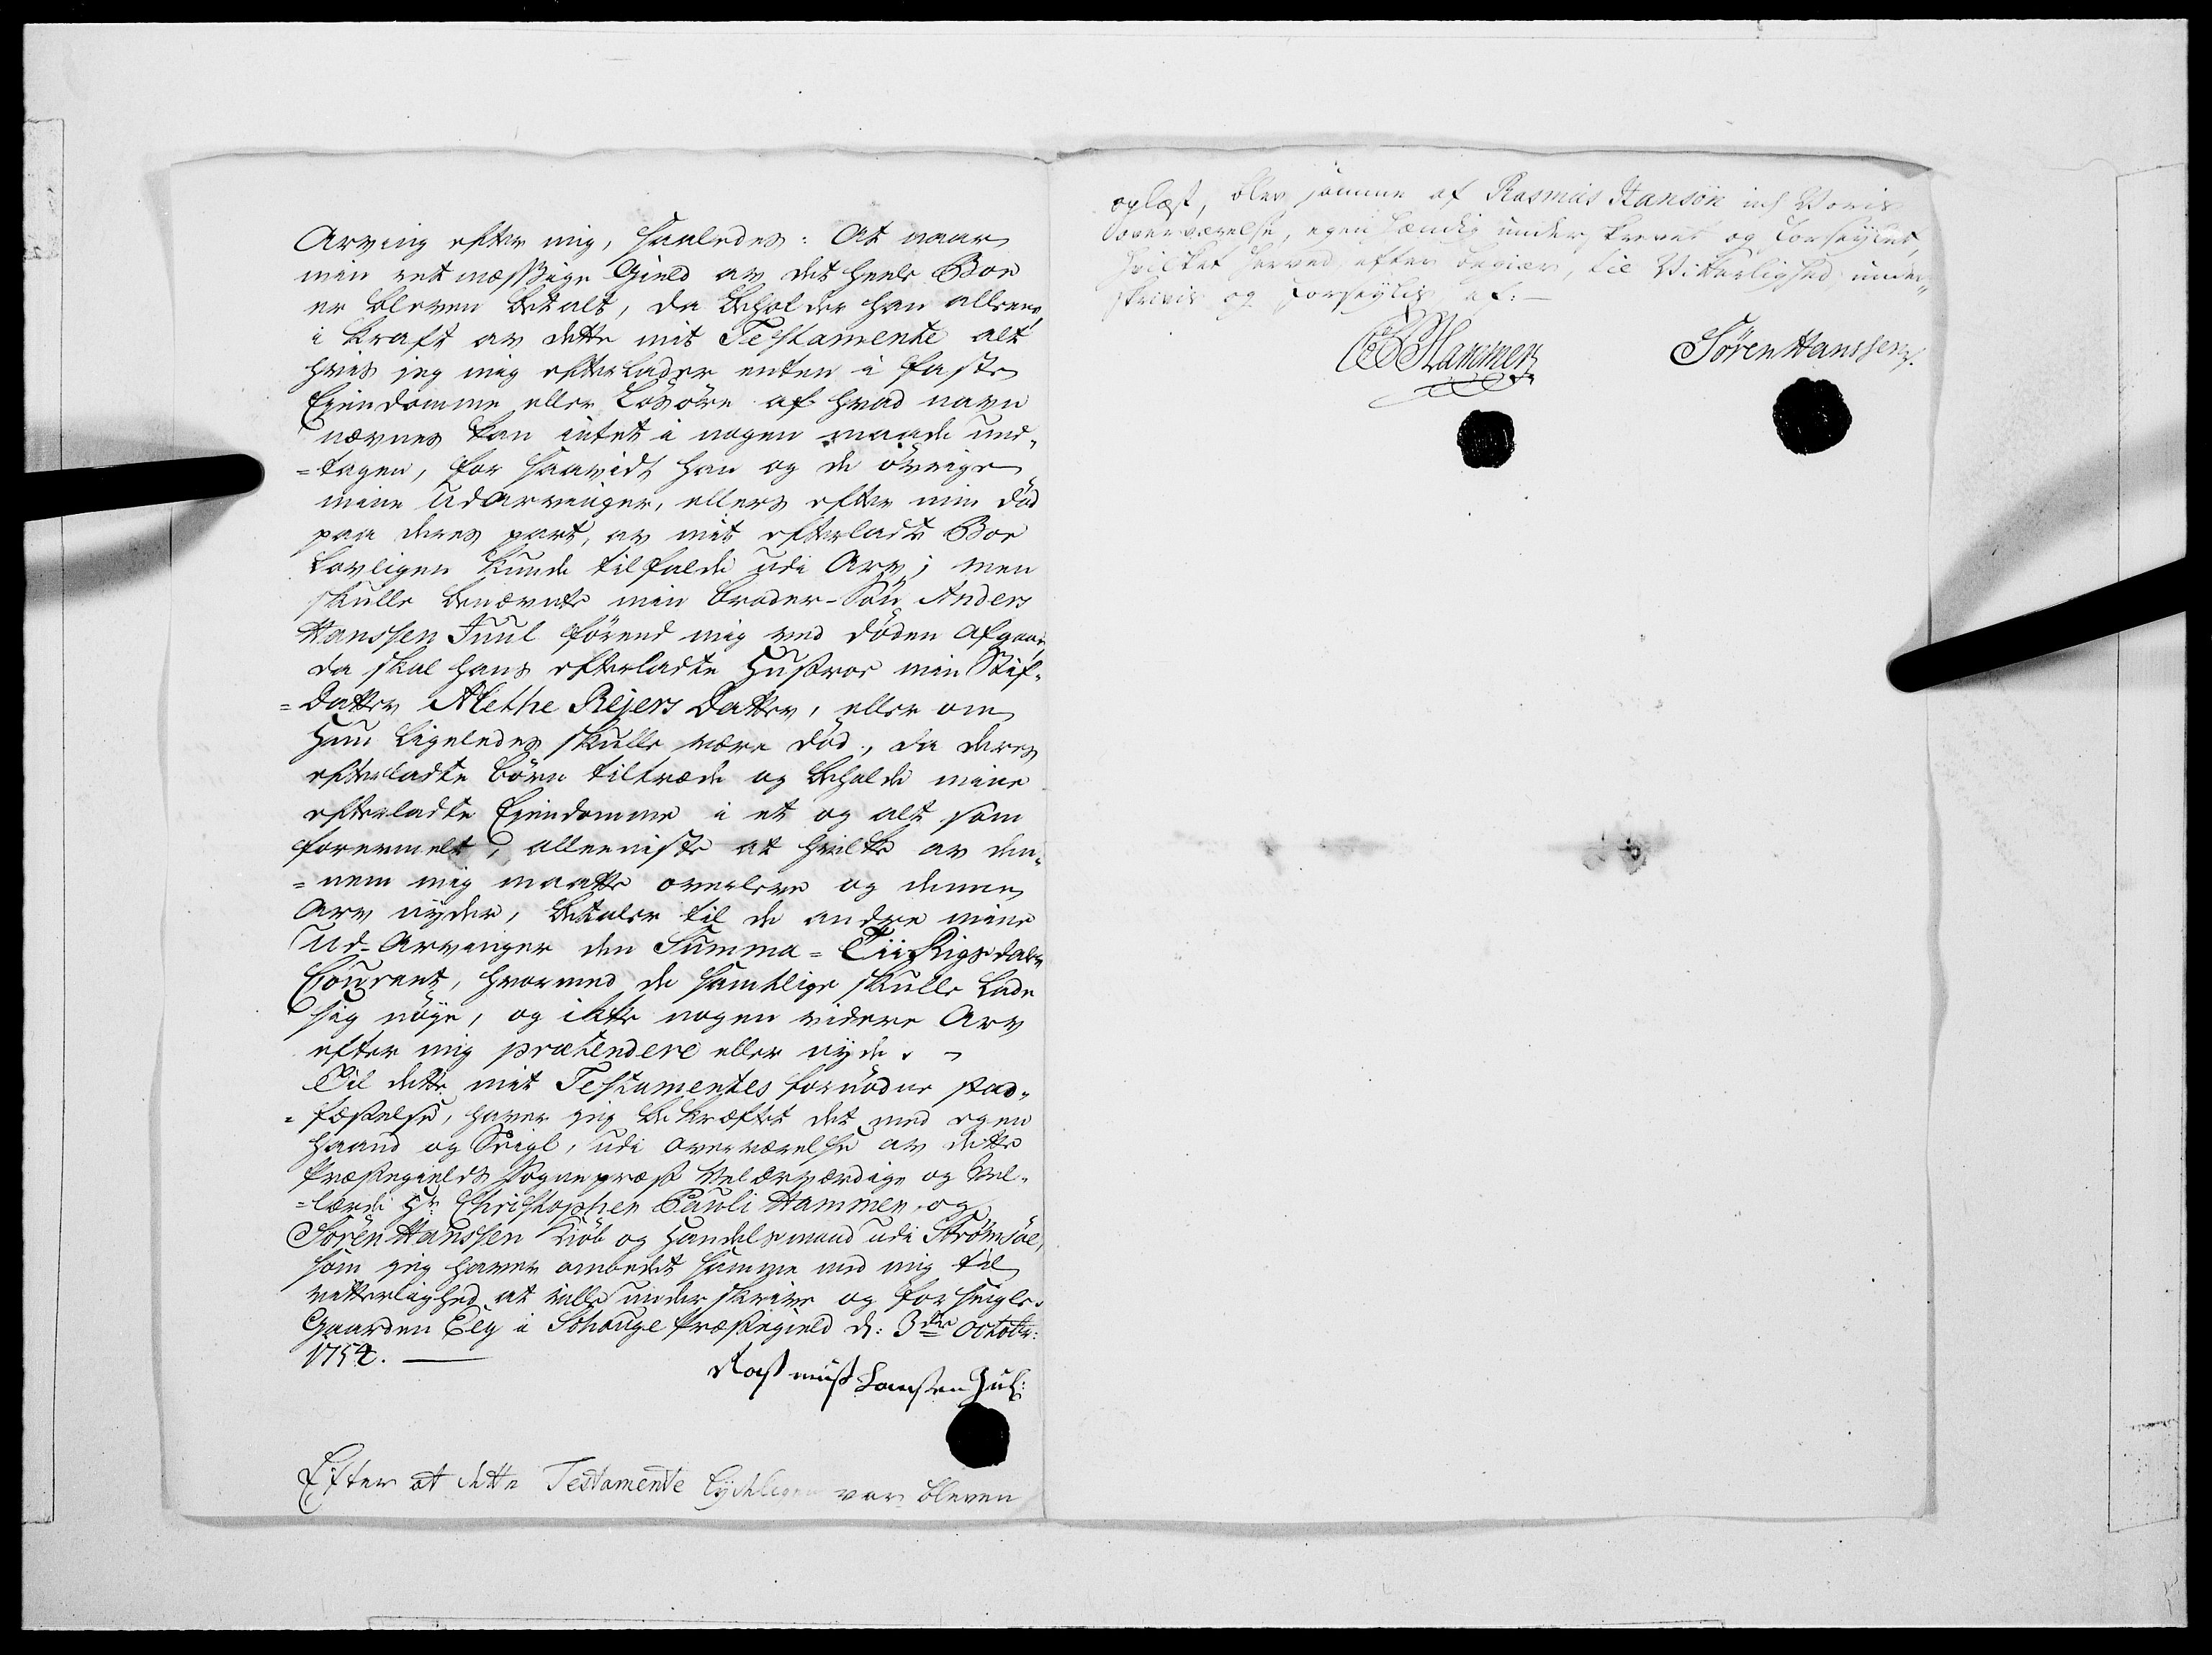 Arving efter mig, saaledes: At naar
min ret mæssige Gield av det heele Boe
er bleven betalt, da beholder han alleene,
i kraft av dette mit Testamente alt
hvis jeg mig efterlader enten i faste
Eiendomme eller Løsøre af hvad navn
nævnes kan intet i nogen maade und-
=tagen, for saavidt han og de øvrige
mine Udarvinger, ellers efter min død
paa deres part, av mit efterladte Boe
Lovligen kunde tilfalde udi Arv; men
skulle benævnte min broder-Søn Anders
Hanssen Juul førend mig ved døden afgaae,
da skal hans efterladte Hustroe min Stif-
=datter Alethe Rejers datter, eller om
hun ligeledes skulle være død, da deres
efterladte børn tiltræde og beholde mine
efterladte Eiendomme i et og alt som
forermelt, alleeniste at hvilke av den-
=nem mig maatte overleve og denne
Arv nyder, betaler til de andre mine
Ud-Arvinger den Summa = Tii Rigsdaler
Courant, hvormed de samtlige skulle lade
sig nøye, og ikke nogen videre Arv
efter mig prætendere eller nyde. -
Til dette mit Testamentes fornødne stad-
=fæstelse, haver jeg bekræftet det med egen
haand og Seigl, udi overværelse av dette
Præstegields Sogne præst Velærværdige og Vel-
=lærde Hr. Christopher Pauli Hammer, og
Søren Hanssen Kiøb og Handelsmand udi Strømsøe,
som jeg haver ombedet samme med mig til
vitterlighed at ville underskrive og forseigle.
Gaarden Elg i Schouge Præstegield d: 3die Octobr:
1754. —
Rasmus Hansen Juhl:
Efter at dette Testamente lydeligen var bleven
oplæst, blev samme af Rasmus Hansøn udj Voris
overværelse, egenhændig underskrevet og Forseyglet,
hvilket herved efter begiær, til Vitterlighed under-
skrivis og forseyglis af: —
CPHammer
Søren Hanssen.